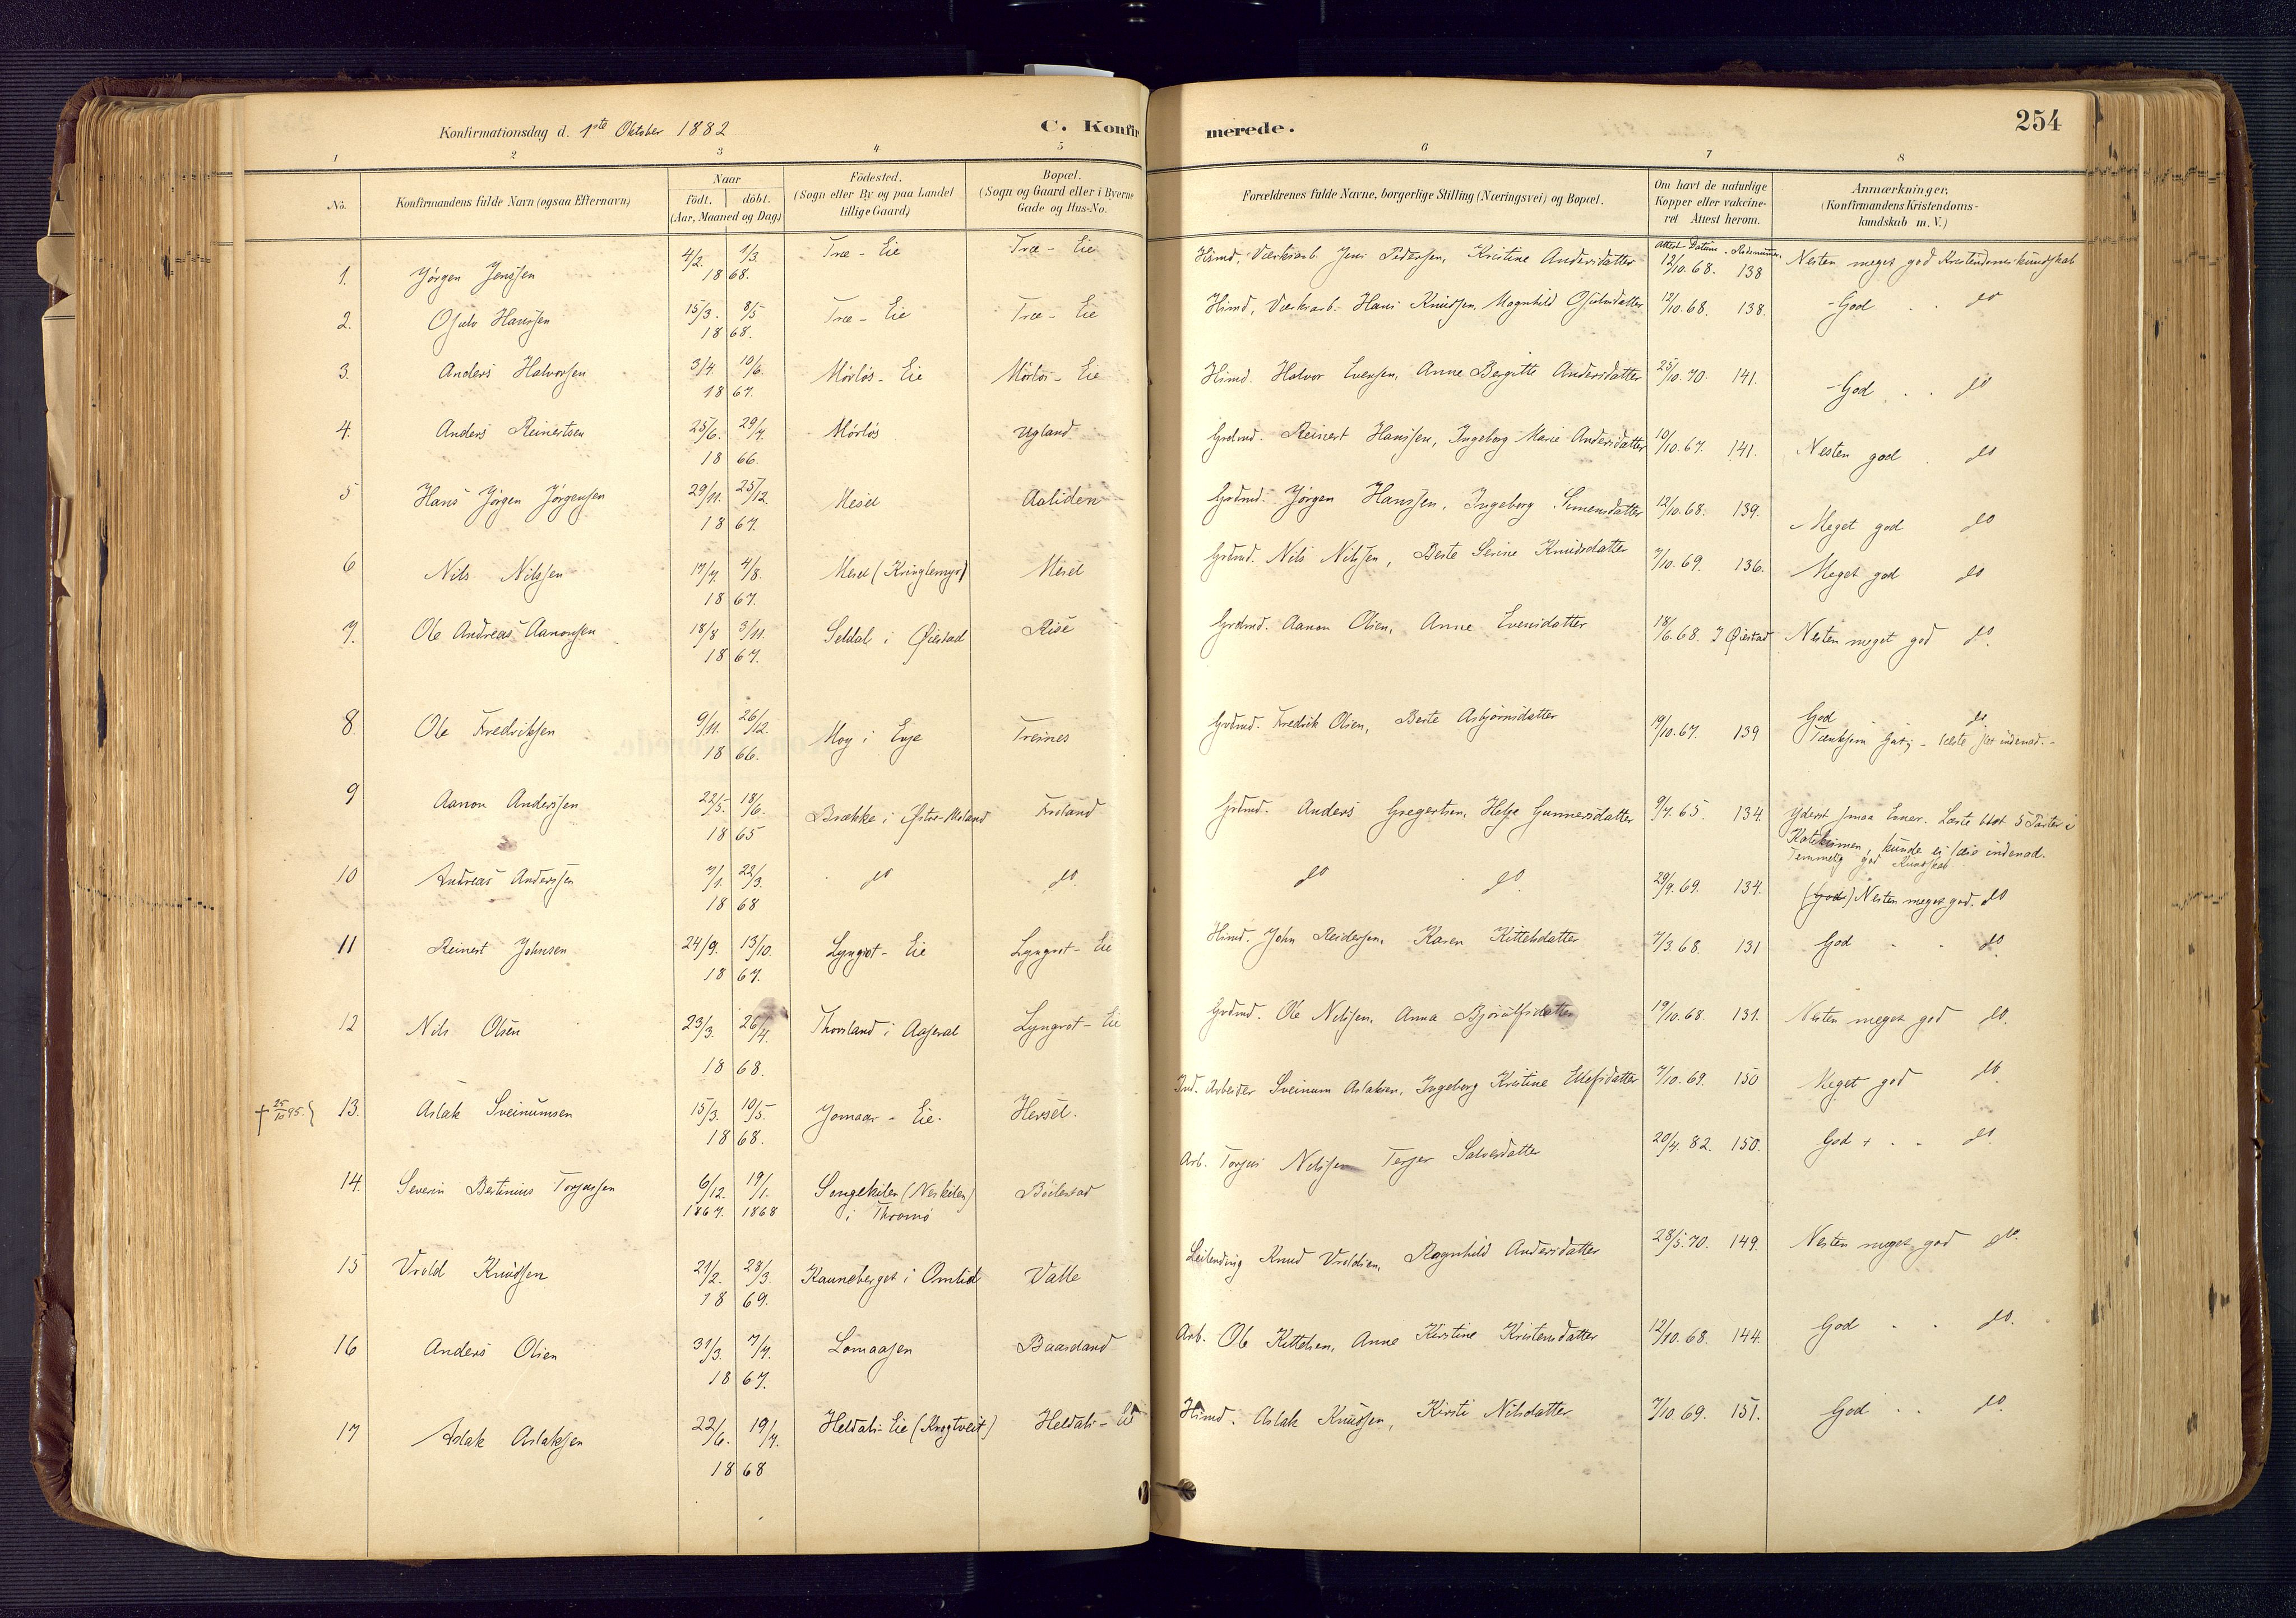 Konfirmationsdag d. 1ste Oktober 1882
C. Konfirmerede.
254
1 2 3 4 5 6 7 8
No. Konfirmandens fulde Navn (ogsaa Efternavn) Naar födt. döbt. (Aar, Maaned og Dag) Födested. (Sogn eller By og paa Landet tillige Gaard) Bopæl. (Sogn og Gaard eller i Byerne Gade og Hus-No. Forældrenes fulde Navne, borgerlige Stilling (Næringsvei) og Bopæl. Om havt de naturlige Kopper eller vaccineret Attest herom. Anmærkninger, (Konfirmandens Kristendomskundskab m. V.)
Attest Datum
1. Jørgen Jenssen 4/2. 1/3. 1868. Træ - Eie Træ - Eie Husmd. Værksarb. Jens Pedersen, Kristine Andersdatter 12/10.68. 138 Nesten meget god Kristendomskundskab
2. Osulv Hanssen 15/3. 8/5 1868. Træ - Eie Træ - Eie Husmd. Værksarb. Hans Knudsen, Magnhild Osulvsdatter 12/10.68. 138. God do
3. Anders Halvorsen 3/4. 10/6. 1867. Mörlös - Eie Mörlös - Eie Husmd. Halvor Evensen, Anne Bergitte Andersdatter 25/10.70. 141. God do
4. Anders Reinertsen 25/6. 29/7. 1866. Mörlös Ugland Grdmd. Reinert Hanssen, Ingeborg Marie Andersdatter 10/10.67. 141. Nesten god do
5 Hans Jörgen Jörgensen 29/11. 25/12. 1867. Mesel Aaliden Grdmd. Jörgen Hanssen, Ingeborg Simensdatter 12/10.68. 139. Meget god do
6 Nils Nilssen 17/7. 4/8. 1867. Mesel (Kringlemyr) Mesel Grdmd. Nils Nilssen, Berte Serine Knudsdatter 7/10.69. 136. Meget god do
7. Ole Andreas Aanonsen 18/8 3/11. 1867. Seldal i Øiestad Rise Grdmd. Aanon Olsen, Anne Evensdatter 18/6.68. I Øiestad Nesten meget god do.
8. Ole Fredriksen 9/11. 26/12. 1866. Moy i Evje Treines Grdmd. Fredrik Olsen, Berte Asbjörnsdatter 19/10.67. 139 God do
9 Aanon Anderssen 22/5. 18/6. 1865 Brække i Østre-Moland Froland Grdmd. Anders Gregertsen, Helje Gunnersdatter 9/7.65. 134. Yderst smaa Evner. Læste blot 5 Parter i
Katekismen, kunde ei læse indenad.
Temmelig god Kundskab
10 Andreas Anderssen 7/1. 22/3. 1868 do do. do do. 29/9.69. 134. (God) Nesten meget god. do
11 Reinert Johnsen 24/9. 13/10. 1867. Lyngrot - Eie Lyngrot - Eie Husmd. John Reidersen, Karen Kittelsdatter 7/3.68. 131 God do.
12 Nils Olsen 23/3. 26/4. 1868. Thorsland i Aaseral Lyngrot - Eie Grdmd. Ole Nilssen, Anna Bjørulfsdatter 19/10.68. 131. Nesten meget god do.
† 25/10 95. } 13. Aslak Sveinumsen 15/3. 10/5. 1868. Jomaas - Eie. Hersel. Ind. Arbeider Sveinum Aslaksen, Ingeborg Kristine Ellefsdatter 7/10.69. 150 Meget god do.
14. Severin Bertinius Torjussen 6/12. 1867. 19/1. 1868 Songekilen (Neskilen) i Thromö Böilestad Arb. Torjus Nilssen Terjer Salvesdatter 20/4.82. 150. God + do.
15 Vrold Knudsen 21/2. 28/3. 1869. Kauneberget i Omlid Valle Leilending Knud Vroldsen, Ragnhild Andersdatter 28/5.70. 149. Nesten meget god do.
16 Anders Olsen 31/3. 7/7. 1867. Lomaasen Baasland Arb. Ole Kittelsen, Anne Kirstine Kristensdatter 12/10.68. 144. God do.
17 Aslak Aslaksen 22/6. 19/7. 1868 Heldals-Eie (Krogtveit) Heldals-Eie Husmd. Aslak Knudsen, Kirsti Nilsdatter 7/10.69. 151. God do.